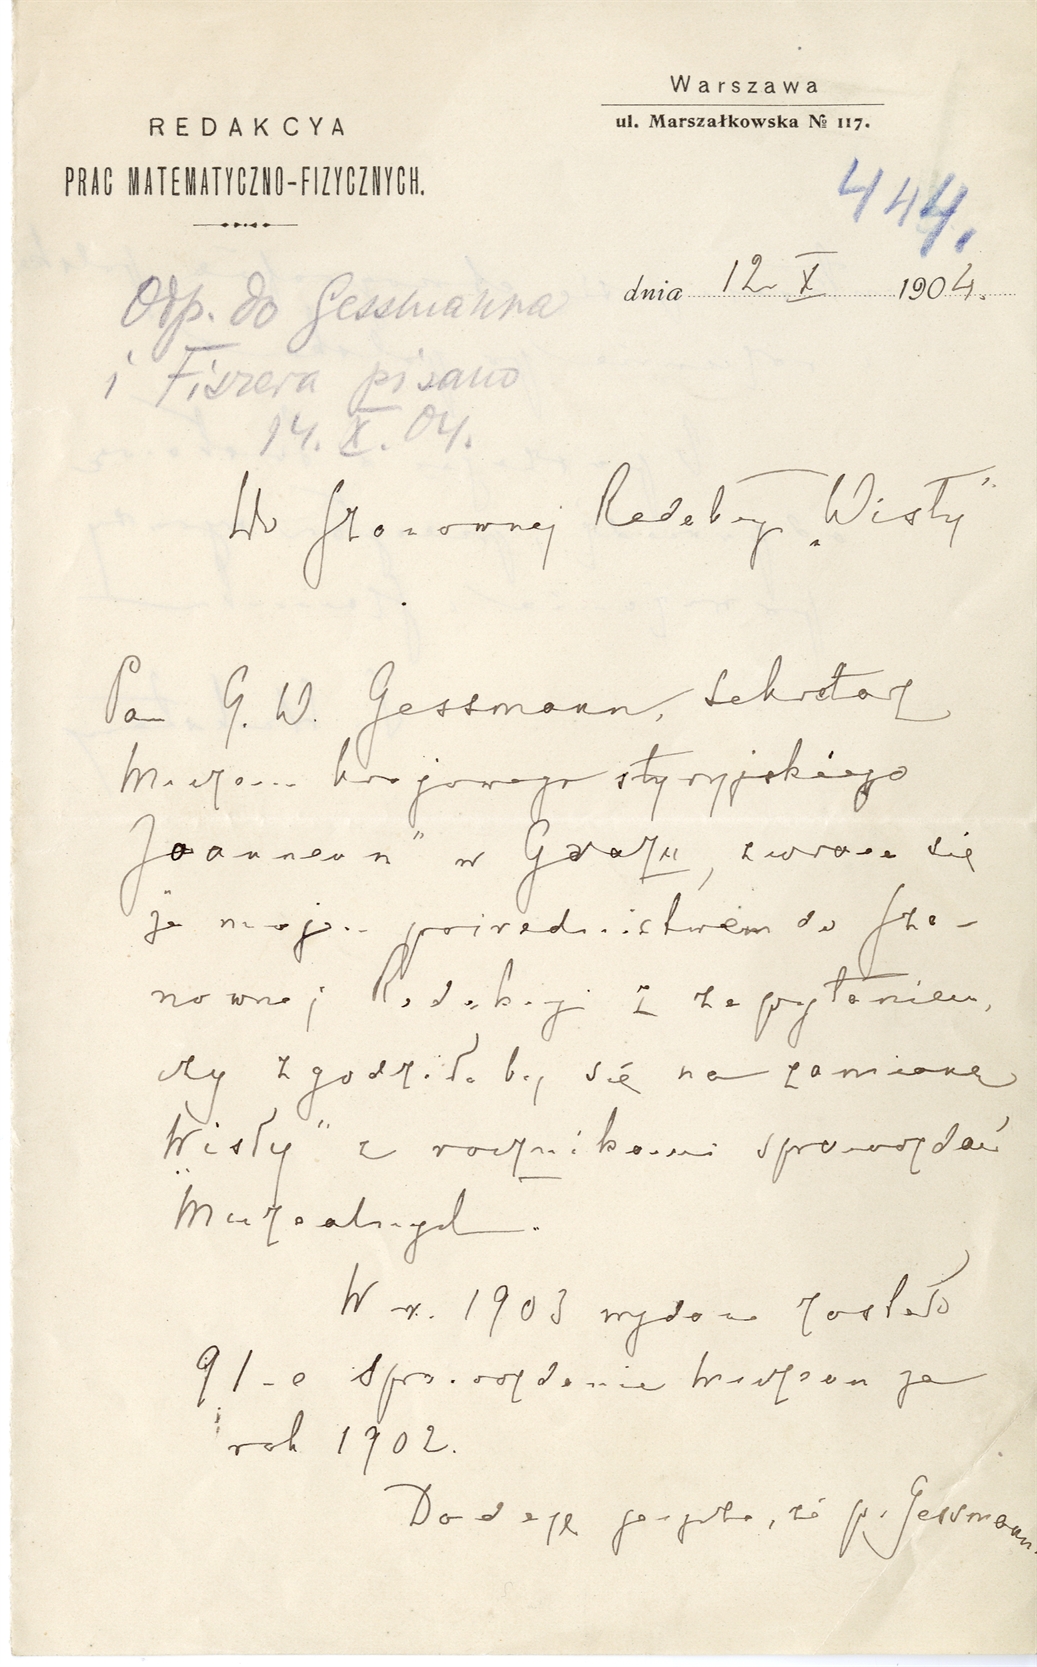 Warszawa
ul. Marszałkowska № 117.
REDAKCYA
PRAC MATEMATYCZNO-FIZYCZNYCH.
444.
dnia 12 X 1904.
Odp. do Gessmanna
i Fiszera pisano
14. X. 04.
Do Szanownej Redakcyi „Wisły"
Pan G. W. Gessmann, sekretarz
Muzeum krajowego styryjskiego
„Joanneum" w Grazu, zwraca się
za mojem pośrednictwem do Sza-
nownej Redakcyi z zapytaniem,
czy zgodziłaby się na zamianę
„Wisły" z rocznikami sprawozdań
Muzealnych.
W r. 1903 wydane zostało
91-e Sprawozdanie Muzeum za
rok 1902.
Dodaję jeszcze, że p. Gessmann